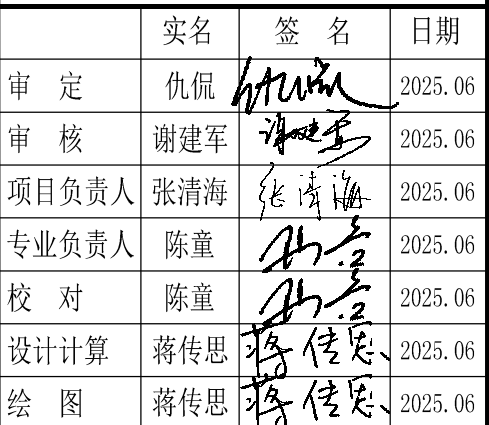 实名 签 名 日期
审 定 仇侃 仇侃 2025.06
审 核 谢建军 谢建军 2025.06
项目负责人 张清海 张清海 2025.06
专业负责人 陈童 陈童 2025.06
校 对 陈童 陈童 2025.06
设计计算 蒋传思 蒋传思 2025.06
绘 图 蒋传思 蒋传思 2025.06